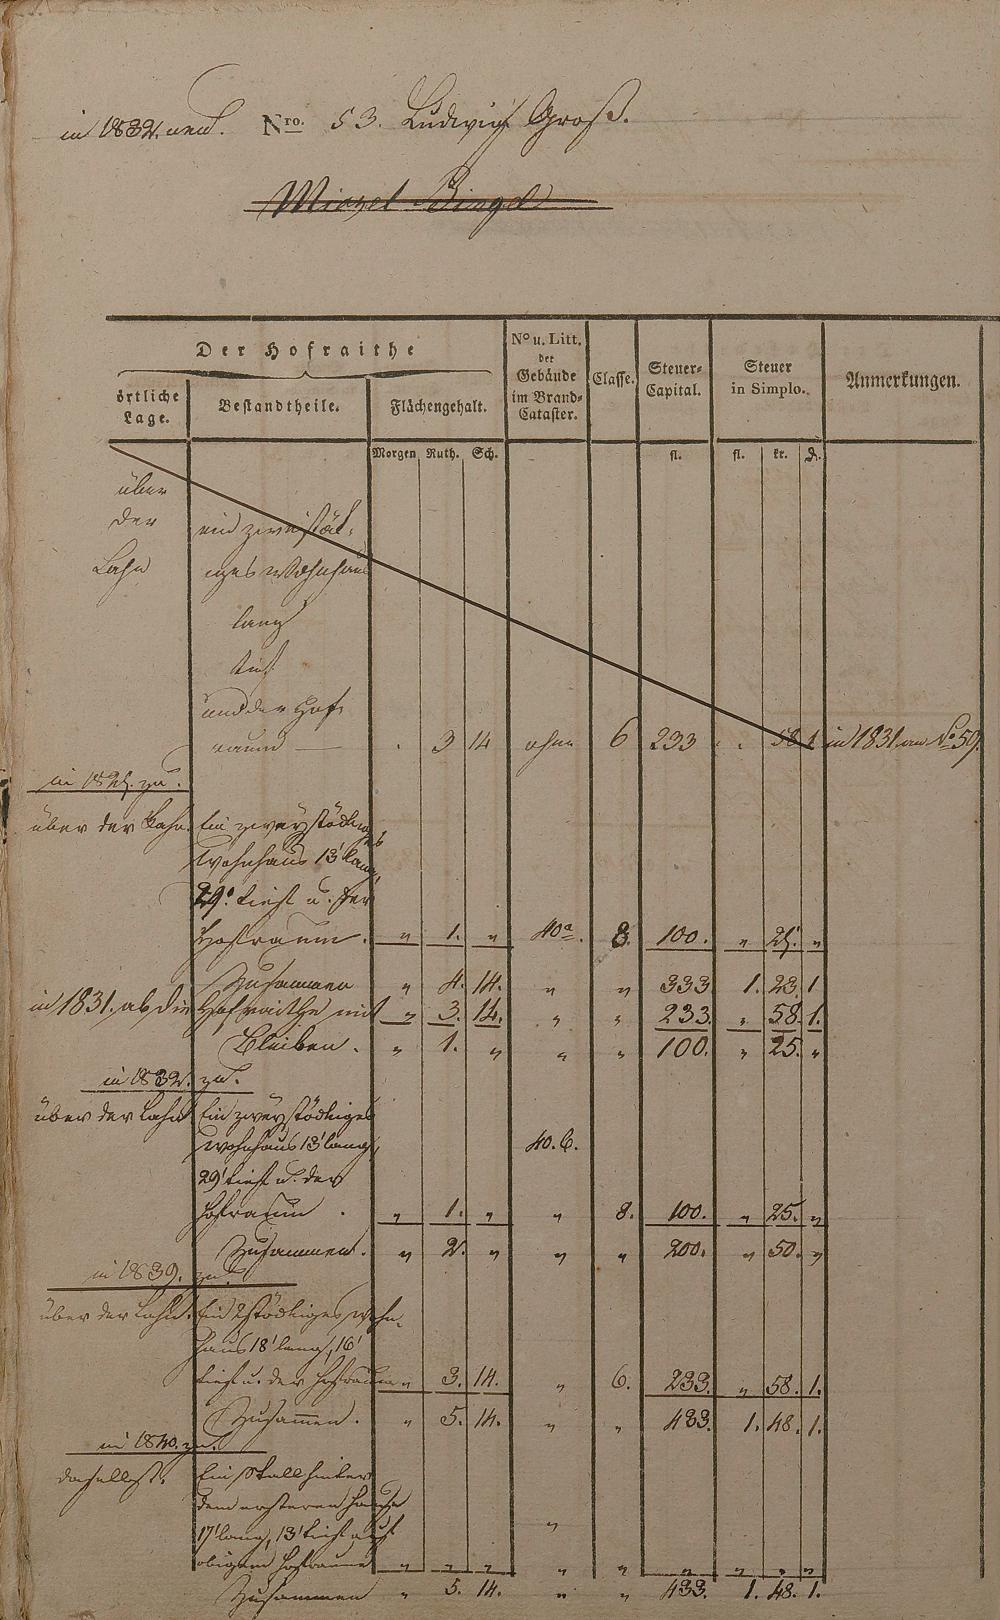 in 1832. neu. Nro. 53. Ludwig Groß.
Der Hofraithe
örtliche Lage.
Bestandtheile.
Flächengehalt.
No u. Litt. der Gebäude im Brand-Cataster.
Classe.
Steuer-Capital.
Steuer in Simplo.
Anmerkungen.
Morgen Ruth. Sch. fl. fl. kr. d.
über
der ein zweistök-
Lahn iges Wohnhaus
lang
tief
und der Hof-
raum — . 3 14 ohne 6 233 . . 58 1 in 1831 an No 59.
zu.
über der Lahn. Ein zweystöckiges
Wohnhaus 13' lang,
29' tief u. der
Hofraum. " 1. " 40a. 8. 100. " 25. "
Zusammen " 4. 14. " " 333 1. 23. 1
in 1831. ab die Hofraithe mit " 3. 14. " " 233. " 58. 1.
Bleiben. " 1. " " " 100. " 25. "
in 1832. zu.
über der Lahn Ein zweystöckiges
Wohnhaus 13' lang, 40. b.
29' tief u. der
Hofraum . " 1. " " 8. 100. " 25. "
Zusammen. " 2. " " " 200. " 50. "
in 1839. zu.
über der Lahn. Ein 2stöckiges Wohn-
haus 18' lang, 16'
tief u. der Hofraum " 3. 14. " 6. 233. " 58. 1.
Zusammen. " 5. 14. " " 433. 1. 48. 1.
in 1840. zu.
daselbst. Ein Stall hinter
dem ersteren Hause
17' lang, 13' tief auf "
obigem Hofraume " " " " " " " " "
Zusammen " 5. 14. " " 433. 1. 48. 1.